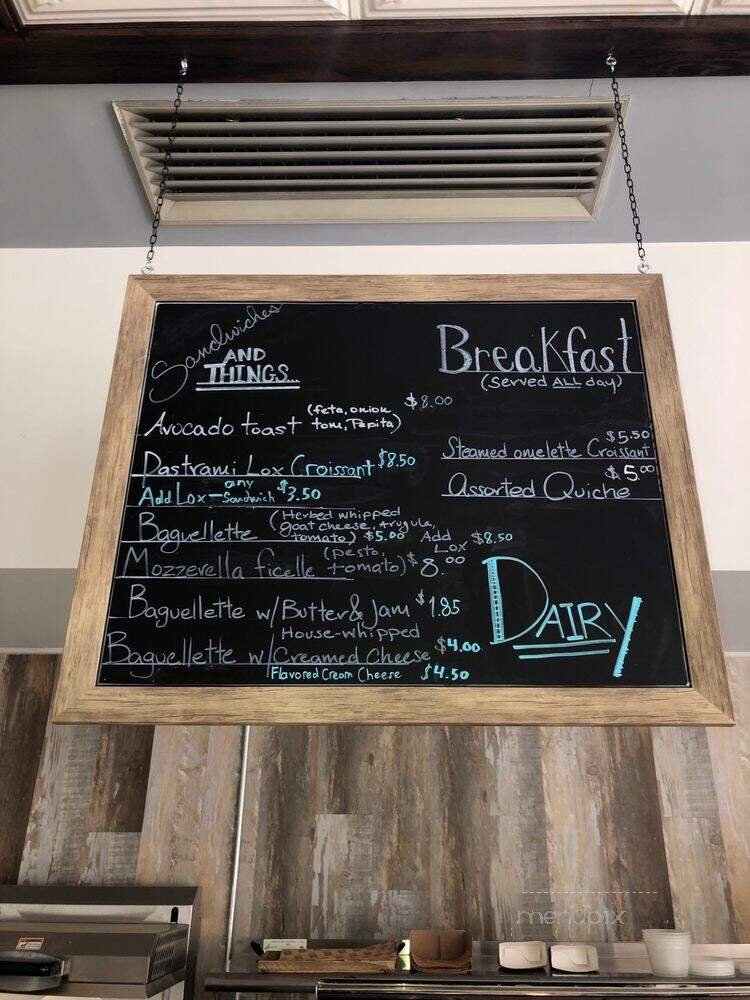 Sandwiches
AND
THINGS...
Avocado toast (feta, onion $8.00
tom, Pepita)
Pastrami Lox Croissant $8.50
Add Lox — any Sandwich $3.50
Baguellette (Herbed whipped
goat cheese, Arugula,
tomato) $5.00 Add Lox $8.50
Mozzerella ficelle (pesto, tomato) $8.00
Baguellette w/ Butter & Jam $1.85
House-whipped
Baguellette w/ Creamed Cheese $4.00
Flavored Cream Cheese $4.50
Breakfast
(Served ALL day)
$5.50
Steamed omelette Croissant
$5.00
Assorted Quiche
DAIRY
menupix